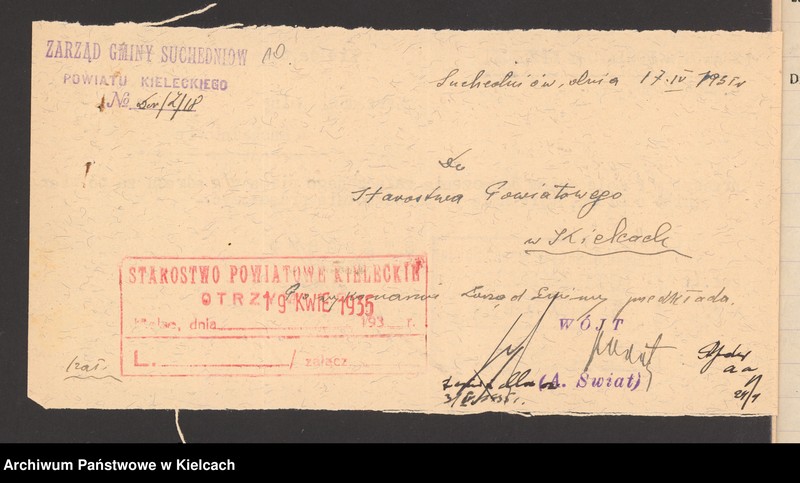 ZARZĄD GMINY SUCHEDNIÓW 10.
POWIATU KIELECKIEGO
№
Suchedniów, dnia 17.IV 1935 r
Do
Starostwa Powiatowego
w Kielcach
STAROSTWO POWIATOWE KIELECKIE
OTRZYM
19 KWIE 1935
Kielce, dnia 193 r.
Po wykonaniu Zarząd Gminy przedkłada.
L. / załącz.
WÓJT
(A. Świat)
1 zał.
aa
Archiwum Państwowe w Kielcach